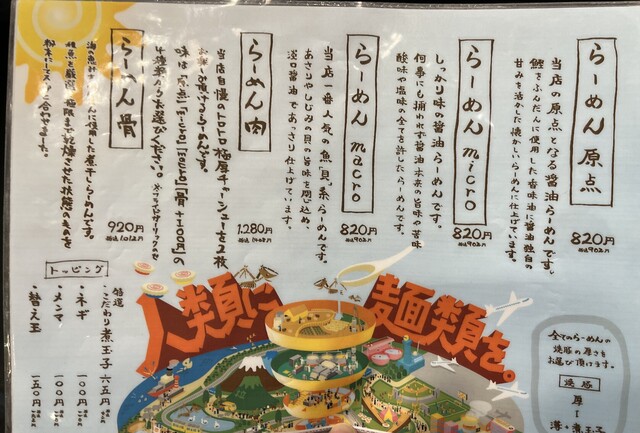 らーめん原点
当店の原点となる醤油らーめんです。
鰹をふんだんに使用した香味油に醤油独自の
甘みを活かした懐かしいらーめんに仕上げています。
820円
税込902円
らーめんmicro
しっかり味の醤油らーめんです。
何事にも捕われず醤油本来の旨味や苦味
酸味や塩味の全てを許したらーめんです。
820円
税込902円
らーめんmacro
当店一番人気の魚「貝」系らーめんです。
あさりやしじみの貝の旨味を閉じ込め、
淡口醤油であっさり仕上げています。
820円
税込902円
らーめん肉
当店自慢のトロトロ極厚チャーシューを2枚
お召し頂けるらーめんです。
味は「原点」「micro」「macro」「骨+100円」の
4種類からお選びください。
1,280円
税込1408円
らーめん骨
使用した煮干しらーめんです。
極限まで乾燥させた状態のものを
920円
税込1012円
トッピング
特選
・こだわり煮玉子 六五円
・ネギ 100円
・メンマ 100円
・替え玉 150円
人類に
麺類を。
全てのらーめんの
焼豚の厚さを
お選び頂けます。
焼豚
厚
薄+煮玉子